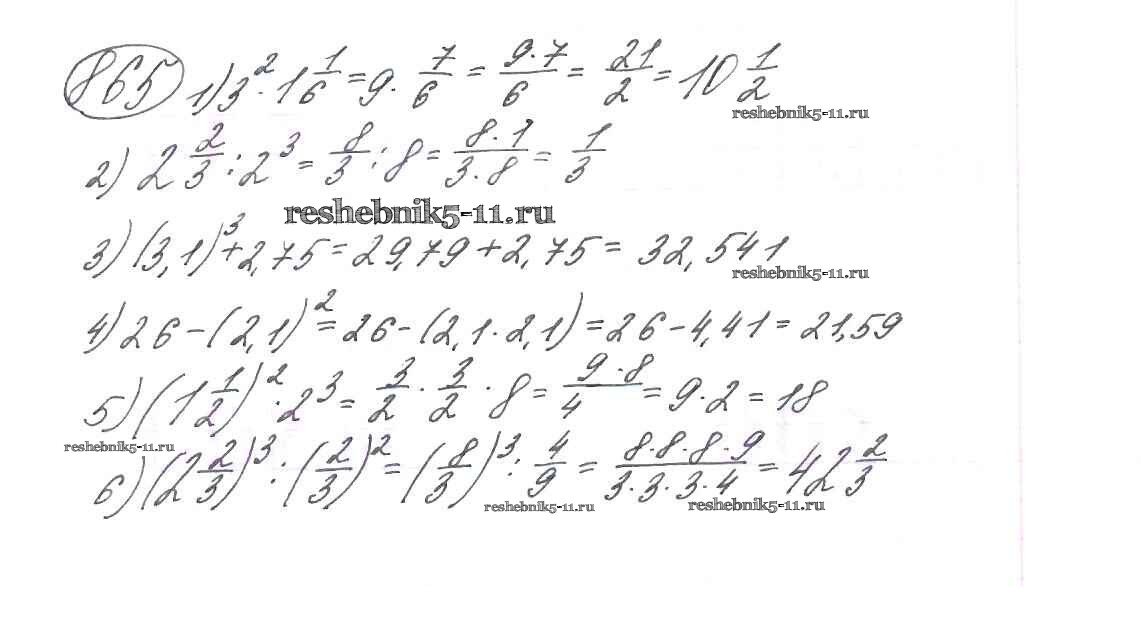 865 1) 3² · 1 1/6 = 9 · 7/6 = 9·7/6 = 21/2 = 10 1/2
reshebnik5-11.ru
2) 2 2/3 : 2³ = 8/3 : 8 = 8·1/3·8 = 1/3
reshebnik5-11.ru
3) (3,1)³ + 2,75 = 29,79 + 2,75 = 32,541
reshebnik5-11.ru
4) 26 - (2,1)² = 26 - (2,1 · 2,1) = 26 - 4,41 = 21,59
5) (1 1/2)² · 2³ = 3/2 · 3/2 · 8 = 9·8/4 = 9 · 2 = 18
reshebnik5-11.ru
6) (2 2/3)³ : (2/3)² = (8/3)³ : 4/9 = 8·8·8·9/3·3·3·4 = 42 2/3
reshebnik5-11.ru reshebnik5-11.ru